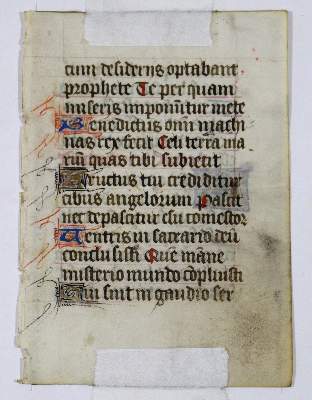 cum desideriis optabant
prophete Te per quam
miseris imponitur mete
Benedictus omni machi
nas rex fecit Celi terra ma
riu quas tibi subiecit
Fructus tui creditur
cibus angelorum Pascit
nec depascitur esu comestor
Ventris in sacrario deu
conclusisti Que mane
misterio mundo copluisti
sint in gaudio ser